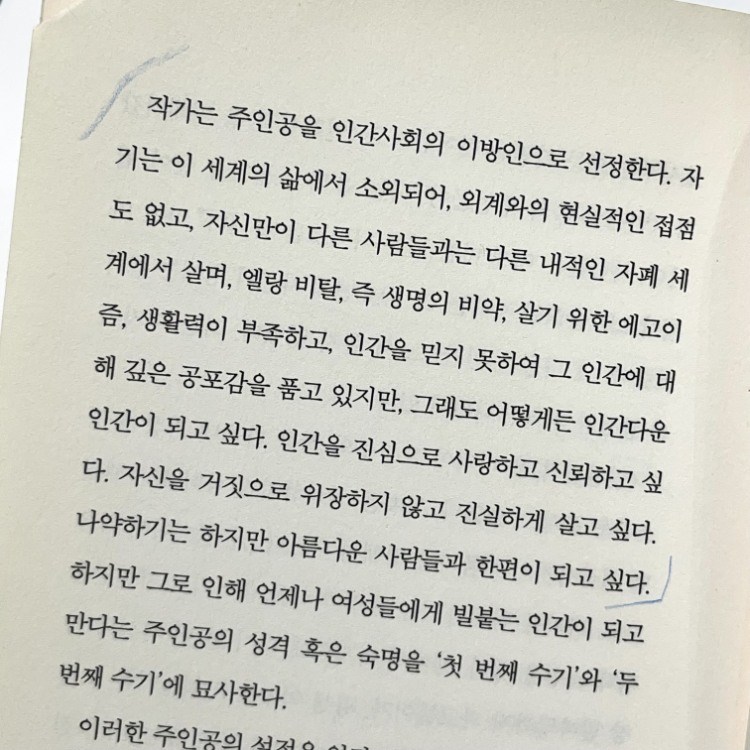 작가는 주인공을 인간사회의 이방인으로 선정한다. 자
기는 이 세계의 삶에서 소외되어, 외계와의 현실적인 접점
도 없고, 자신만이 다른 사람들과는 다른 내적인 자폐 세
계에서 살며, 엘랑 비탈, 즉 생명의 비약, 살기 위한 에고이
즘, 생활력이 부족하고, 인간을 믿지 못하여 그 인간에 대
해 깊은 공포감을 품고 있지만, 그래도 어떻게든 인간다운
인간이 되고 싶다. 인간을 진심으로 사랑하고 신뢰하고 싶
다. 자신을 거짓으로 위장하지 않고 진실하게 살고 싶다.
나약하기는 하지만 아름다운 사람들과 한편이 되고 싶다.
하지만 그로 인해 언제나 여성들에게 빌붙는 인간이 되고
만다는 주인공의 성격 혹은 숙명을 ‘첫 번째 수기’와 ‘두
번째 수기’에 묘사한다.
이러한 주인공의 설정은